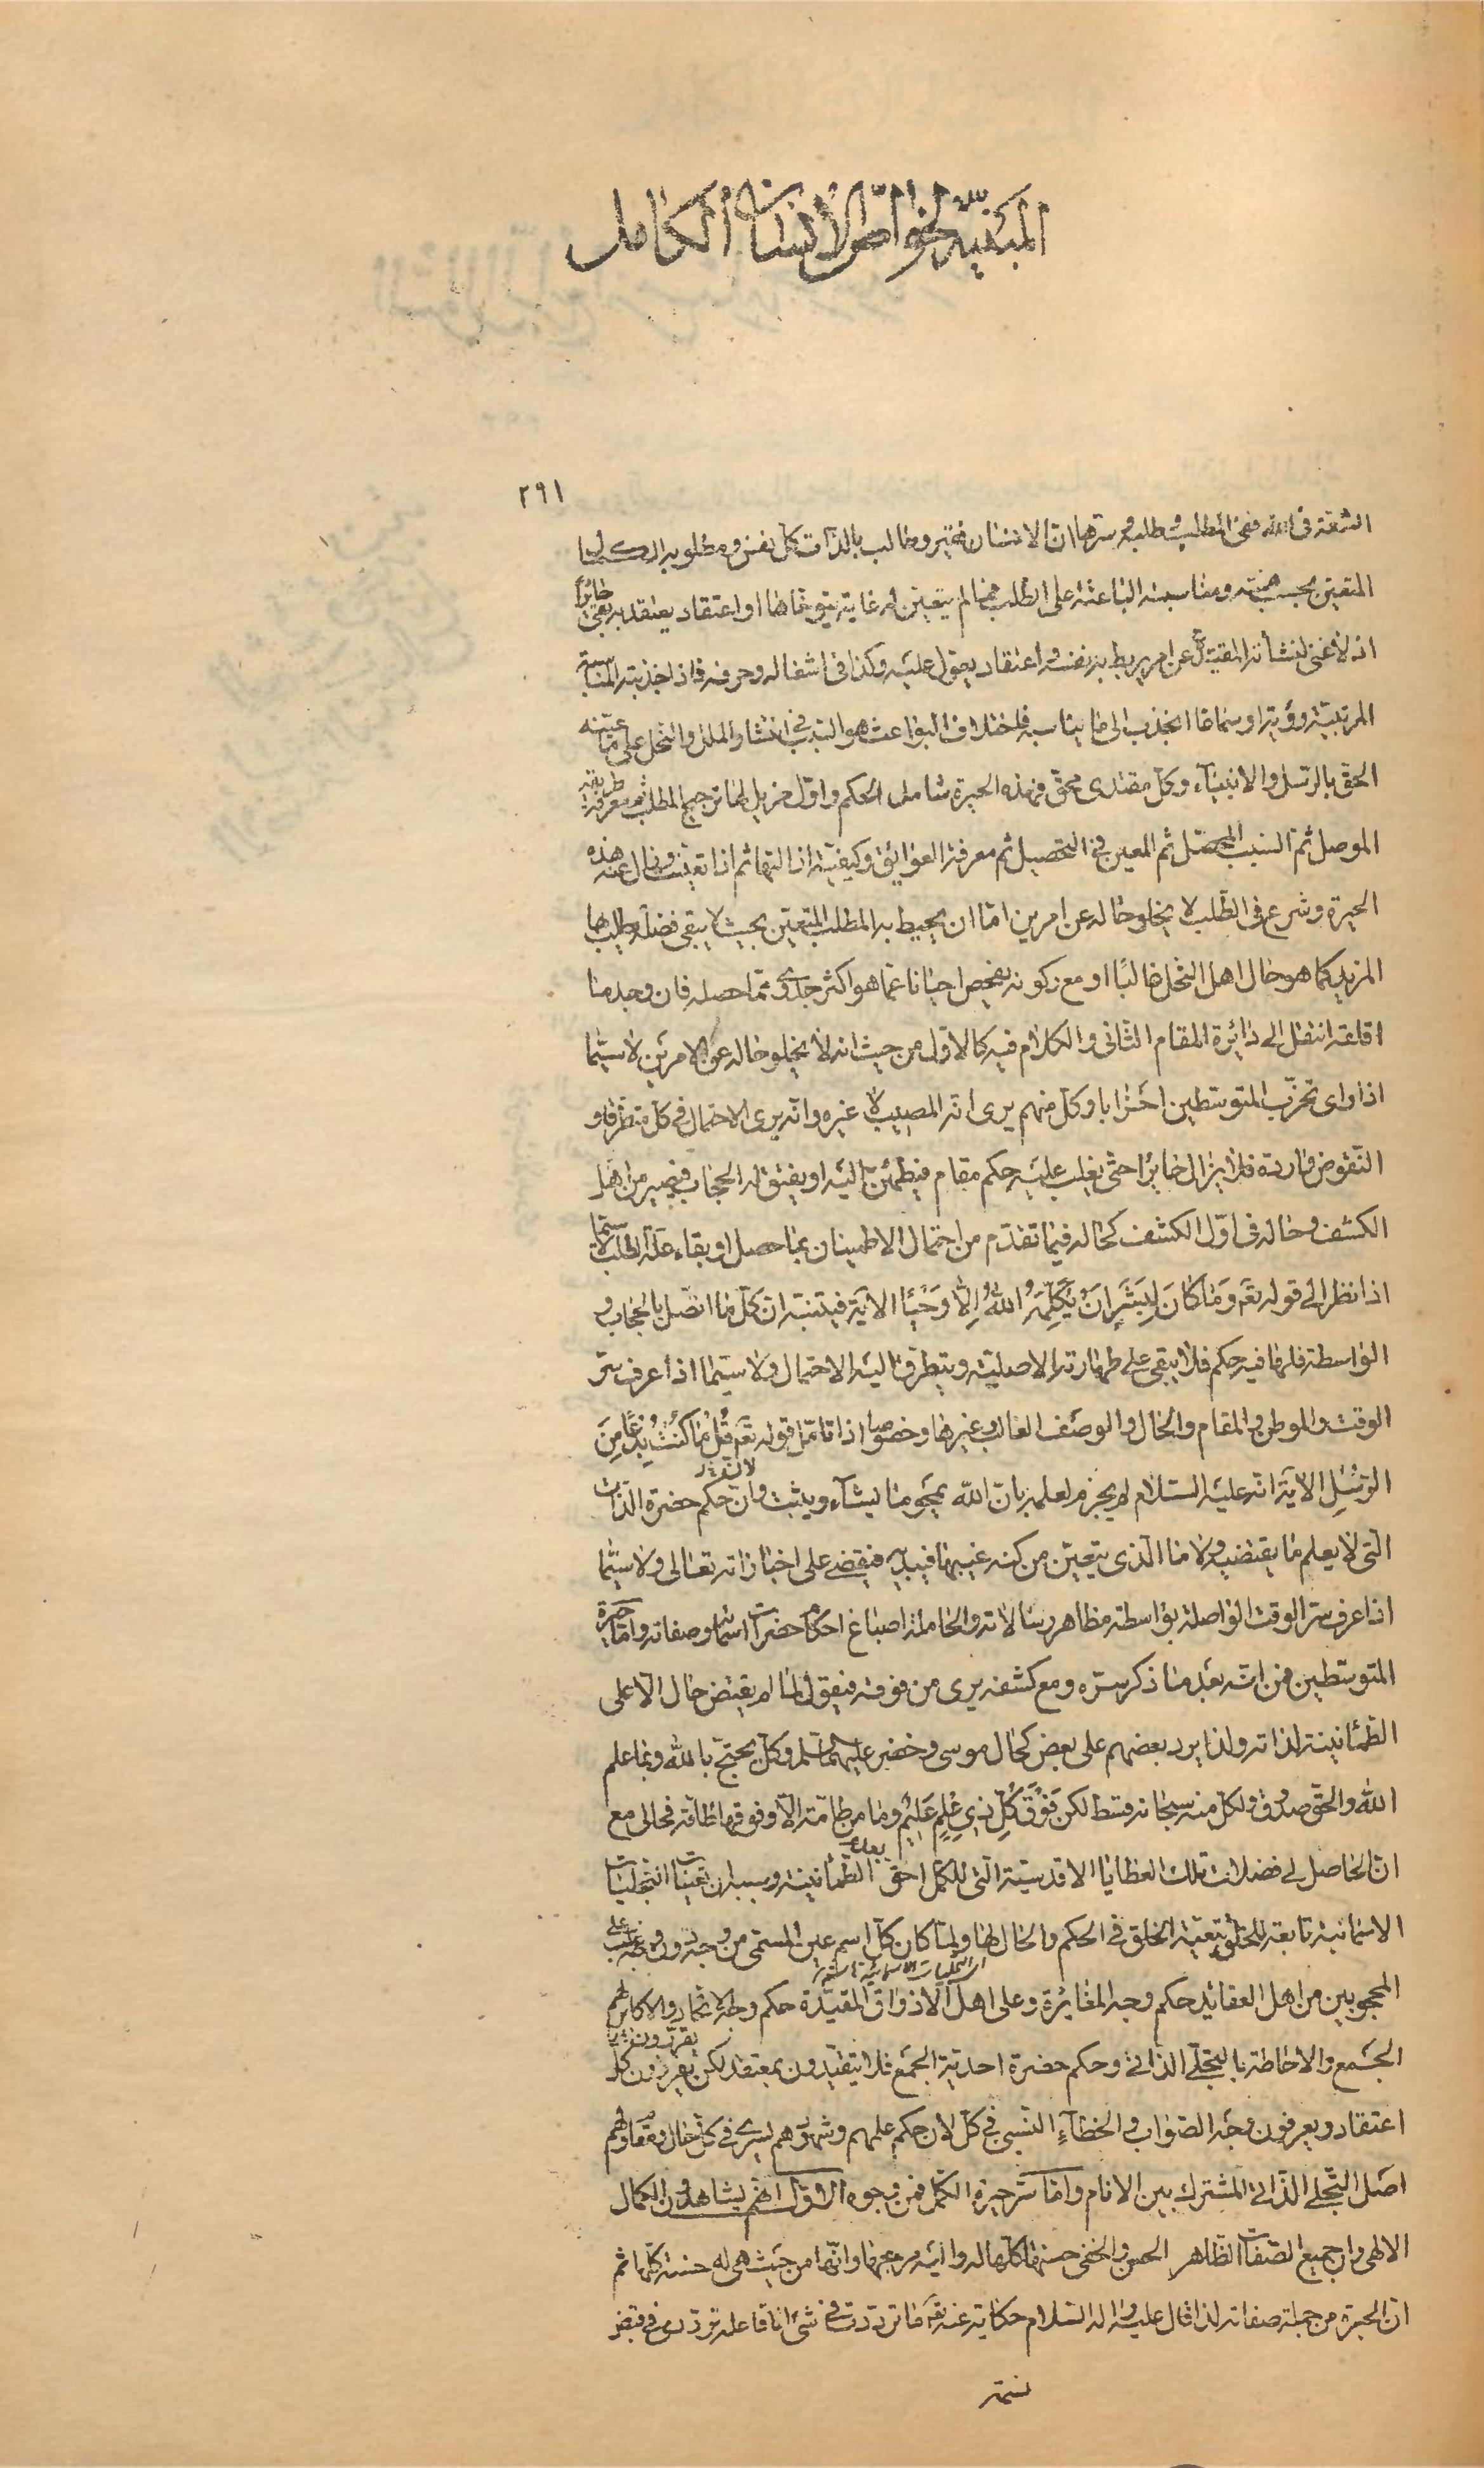 المبينة لخواص الإنسان الكامل
٢٩١
المتعين بحسب همته ومناسبته الباعثة على الطلب فما لم يتعين له غاية يتوخاها او اعتقاد يعتقد به بقى حائرًا
اذ لا غنى لنشأته المقيدة عن امر يربط به نفسه واعتقاد يعول عليه وكذا فى اشغاله وحرفه فاذا جذبته المناسبة
المرتبية رؤية او سماعا انجذب الى ما يناسبه فاختلاف البواعث هو السبب فى انتشاء الملل والنحل على ما عينه
الحق بالرسل والانبياء وكل مقتدى محق فهذه الحيرة شاملة الحكم واول مزيل لها ترجيح المطلب ثم معرفة طريقه
الموصل ثم السبب المحصل ثم المعين فى التحصيل ثم معرفة العوايق وكيفية ازالتها ثم اذا تعينت وزال عنه هذه
الحيرة وشرع فى الطلب لا يخلو حاله عن امرين اما ان يحيط به المطلب المتعين بحيث لا يبقى فضلة يطلب بها
المزيد كما هو حال اهل النحل غالبًا او مع ركونه يفحص احيانا عما هو اكثر جدوى مما حصله فان وجد ما
اقلعه انتقل الى دائرة المقام الثانى والكلام فيه كالاول من حيث انه لا يخلو حاله عن الامرين لا سيما
اذا راى تحزب المتوسطين احزابا وكل منهم يرى انه المصيب لا غيره وانه يرى الاحتمال فى كل متطرقا و
النقوض واردة فلا يزال حايرًا حتى يغلب عليه حكم مقام فيطمئن اليه او يفتق له الحجاب فيصير من اهل
الكشف وحاله فى اول الكشف كحاله فيما تقدم من احتمال الاطمينان بما حصل او بقاء علة الطلب لا سيما
اذا نظر الى قوله تعَ وَمَا كَانَ لِبَشَرٍ اَنْ يُكَلِّمَهُ اللهُ اِلّا وَحْيًا الاية فيتنبه ان كل ما اتصل بالحجاب و
الواسطة فلهما فيه حكم فلا يبقى على طهارته الاصلية ويتطرق اليه الاحتمال ولا سيما اذا عرف سر
الوقت والموطن والمقام والحال والوصف الغالب وغيرها وخصوصا اذا تامل قوله تعَ قُلْ مَا كُنْتُ بِدْعًا مِنَ
الرُّسُلِ الاية انه عليه السلام لم يجزم لعلمه بان الله يمحو ما يشاء ويثبت وان حكم حضرة الذات
التى لا يعلم ما يقتضيه ولا ما الذى يتعين من كنه غيبها فيبديه فيقضى على اخباراته تعالى ولا سيما
اذا عرف سر الوقت الواصلة بواسطة مظاهر رسالاته والحاملة اصباغ احكام حضرات اسمائه وصفاته واما حيرة
المتوسطين فمن انه بعد ما ذكر سره ومع كشفه يرى من فوقه فيقول لما لم يقتض حال الاعلى
الطمأنينة لذاته ولذا يرد بعضهم على بعض كحال موسى وخضر عليهما السلم وكل يحتج بالله وبما علم
الله والحق صدوق ولكل منه سبحانه قسط لكن فَوْقَ كُلِّ ذِي عِلْمٍ عَلِيمٌ وما من طامة الا وفوقها طامة فحالى مع
ان الحاصل لى فضلات تلك العطايا الاقدسية التى للكمل احق بعدم الطمأنينة وسببه ان تعينات التجليات
الاسمائية تابعة للخلق تبعية الخلق فى الحكم والحال لها ولما كان كل اسم عين المسمى من وجه دون وجه غلب على
المحجوبين من اهل العقائد حكم وجه المغايرة وعلى اهل الاذواق المقيدة حكم وجه الاتحاد والاكابر لهم
الجمع والاحاطة بالتجلى الذاتى وحكم حضرة احدية الجمع فلا يتقيدون بمعتقد لكن يقررون كل
اعتقاد ويعرفون وجه الصواب والخطاء النسبى فى كل لان حكم علمهم وشهودهم يسرى فى كل حال ومقام ولهم
اصل التجلى الذاتى المشترك بين الانام واما سر حيرة الكمل فمن وجوه الاول انهم يشاهدون الكمال
الالهى وان جميع الصفات الظاهر الحسن والخفى حسنها كلها له واليه مرجعها وانها من حيث هى له حسنة كلها ثم
ان الحيرة من جملة صفاته لذا قال عليه واله السلام حكاية عنه تعَ ما ترددت فى شئ انا فاعله ترددى فى قبض
نسمة